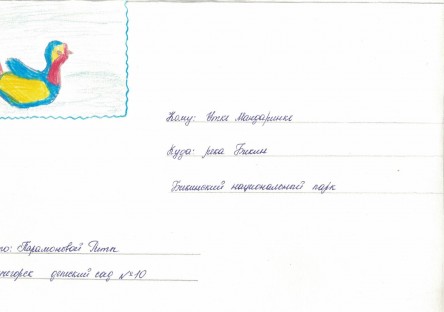 Кому: Утке Мандаринке
Куда: река Бикин
Бикинский национальный парк
го: Парамоновой Риты
негорск детский сад №10